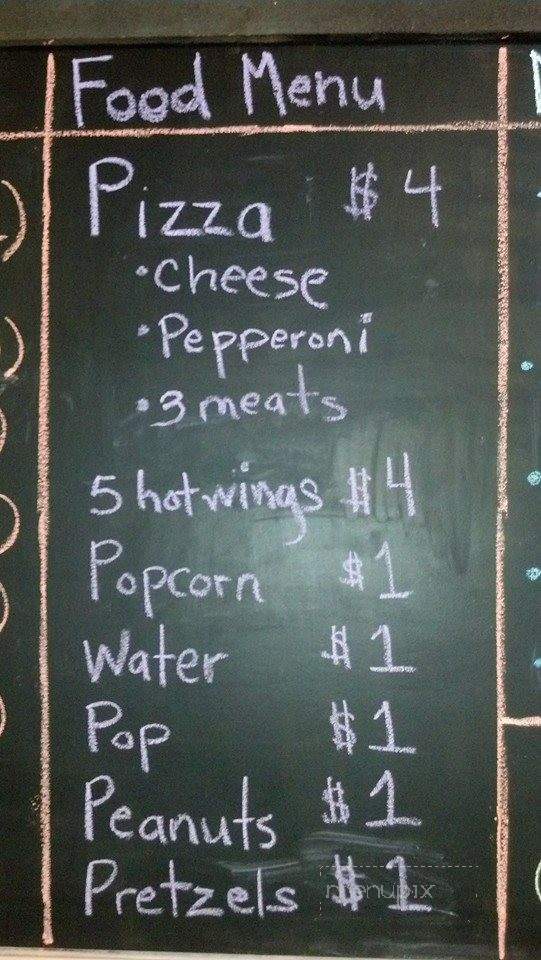 Food Menu
Pizza $4
•Cheese
•Pepperoni
•3 meats
5 hotwings $4
Popcorn $1
Water $1
Pop $1
Peanuts $1
Pretzels $1
menupix